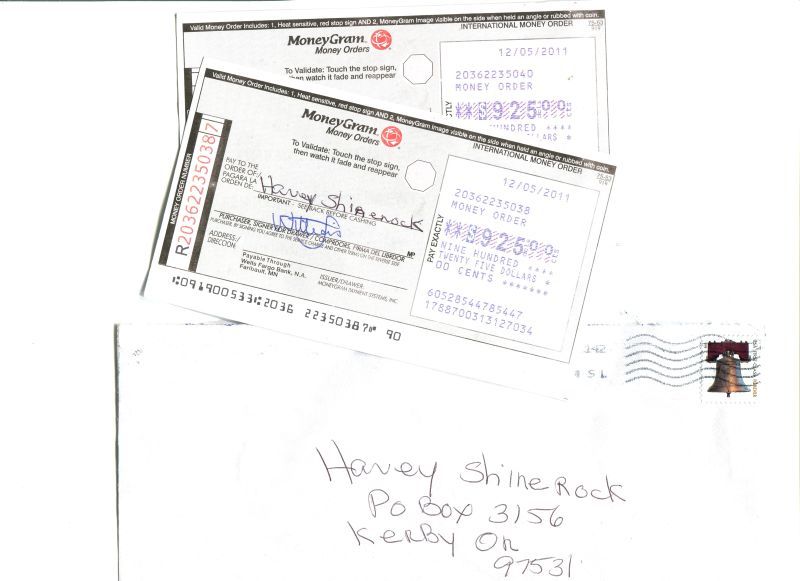 Valid Money Order Includes: 1. Heat sensitive, red stop sign AND 2. MoneyGram Image visible on the side when held an angle or rubbed with coin.
INTERNATIONAL MONEY ORDER
MoneyGram
Money Orders
To Validate: Touch the stop sign,
then watch it fade and reappear
12/05/2011
20362235040
MONEY ORDER
**$925.00
HUNDRED ****
DOLLARS *
Valid Money Order Includes: 1. Heat sensitive, red stop sign AND 2. MoneyGram Image visible on the side when held an angle or rubbed with coin.
INTERNATIONAL MONEY ORDER
MoneyGram
Money Orders
To Validate: Touch the stop sign,
then watch it fade and reappear
MONEY ORDER NUMBER
R203622350387
PAY TO THE
ORDER OF:/
PAGAR A LA
ORDEN DE:
Havey Shinerock
IMPORTANT - SEE BACK BEFORE CASHING
PURCHASER, SIGNER FOR DRAWER / COMPRADOR, FIRMA DEL LIBRADOR
PURCHASER, BY SIGNING YOU AGREE TO THE SERVICE CHARGE AND OTHER TERMS ON THE REVERSE SIDE
MP
ADDRESS:/
DIRECCION:
Payable Through
Wells Fargo Bank, N.A.
Faribault, MN
ISSUER/DRAWER:
MONEYGRAM PAYMENT SYSTEMS, INC
PAY EXACTLY
12/05/2011
20362235038
MONEY ORDER
**$925.00
NINE HUNDRED ****
TWENTY FIVE DOLLARS *
00 CENTS *******
60528544785447
1788700313127034
091900533 2036 22350387 90
Havey Shinerock
Po Box 3156
Kerby OR
97531